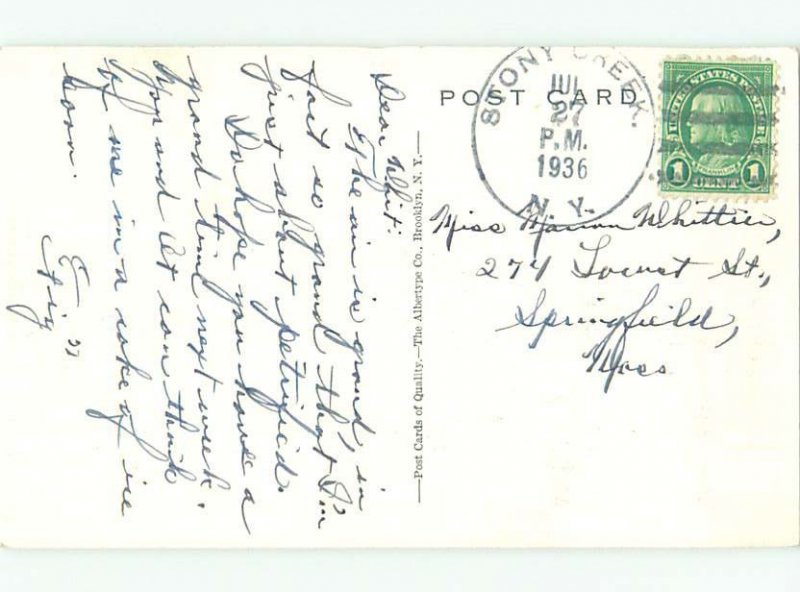 POST CARD
STONY CREEK.
JUL
27
P.M.
1936
N.Y.
UNITED STATES POSTAGE
FRANKLIN
1 CENT 1
Miss Marion Whittier,
274 Locust St.,
Springfield,
Mass
—Post Cards of Quality.—The Albertype Co., Brooklyn, N. Y.—
Dear Whit:
The air is grand, in
fact so grand that I'm
just about petrified.
Do hope you have a
grand time next week.
You and Et can think
of me in a cake of ice